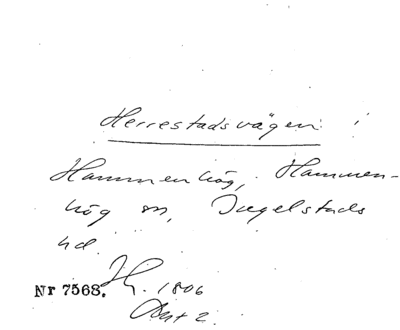 Herrestadsvägen i
Hammenhög, Hammen-
hög sn, Ingelstads
hd.
Nr 7568. Hy. 1806
Akt 2.